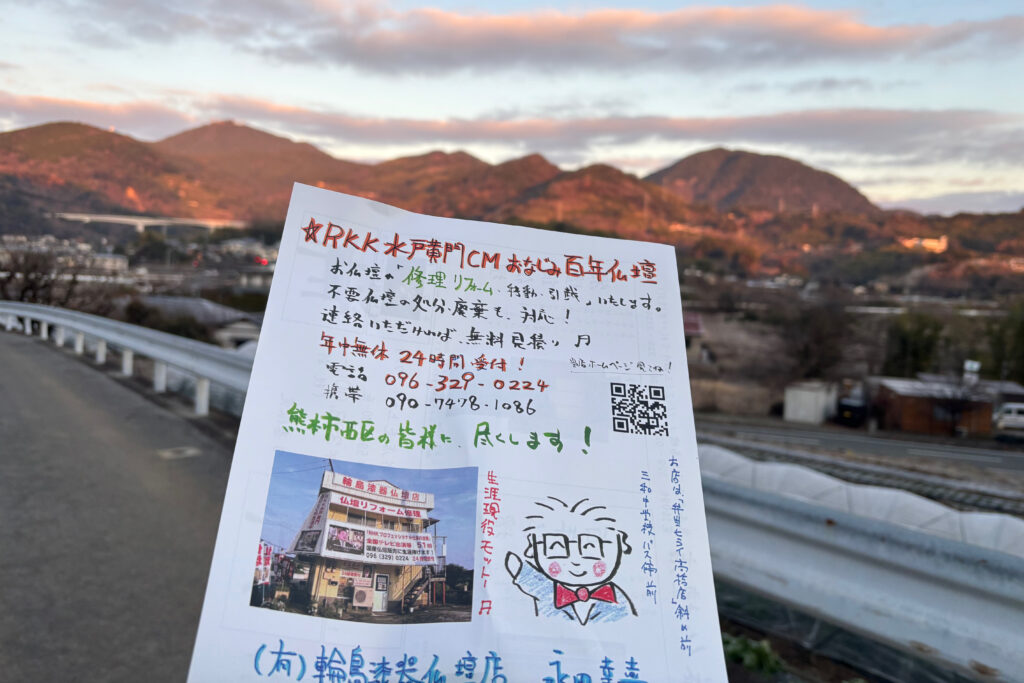 ☆RKK水戸黄門CMおなじみ百年仏壇
お仏壇の「修理リフォーム・移動・引越」いたします。
不要仏壇の処分、廃棄も、対応！
連絡いただければ、無料見積り
年中無休 24時間受付！
当店ホームページ見てね！
電話 096-329-0224
携帯 090-7478-1086
熊本市西区の皆様に、尽くします！
輪島漆器仏壇店
仏壇リフォーム修理
全国テレビ出演 51
096(329)0224
生涯現役モットー
お店は、「弁当ヒライ高橋店」斜め前
三和中学校バス停前
(有)輪島漆器仏壇店 永田幸喜